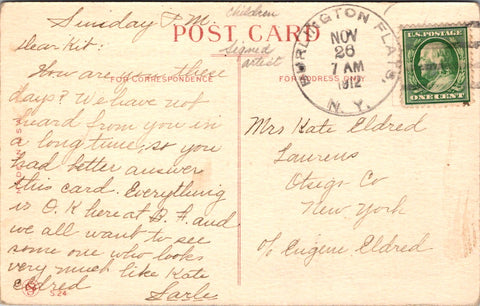 Sunday P.M.
Children
POST CARD
Signed
artist
Dear Kit:
How are you these
FOR CORRESPONDENCE
FOR ADDRESS ONLY
days? We have not
heard from you in
a long time, so you
had better answer
this card. Everything
is O.K here at B. F. and
we all want to see
some one who looks
very much like Kate
Eldred
524
BURLINGTON FLATS,
NOV
26
7 AM
1912
N.Y.
U.S. POSTAGE
ONE CENT
Mrs Kate Eldred
Laurens
Otsego Co
New York
c/o Eugene Eldred